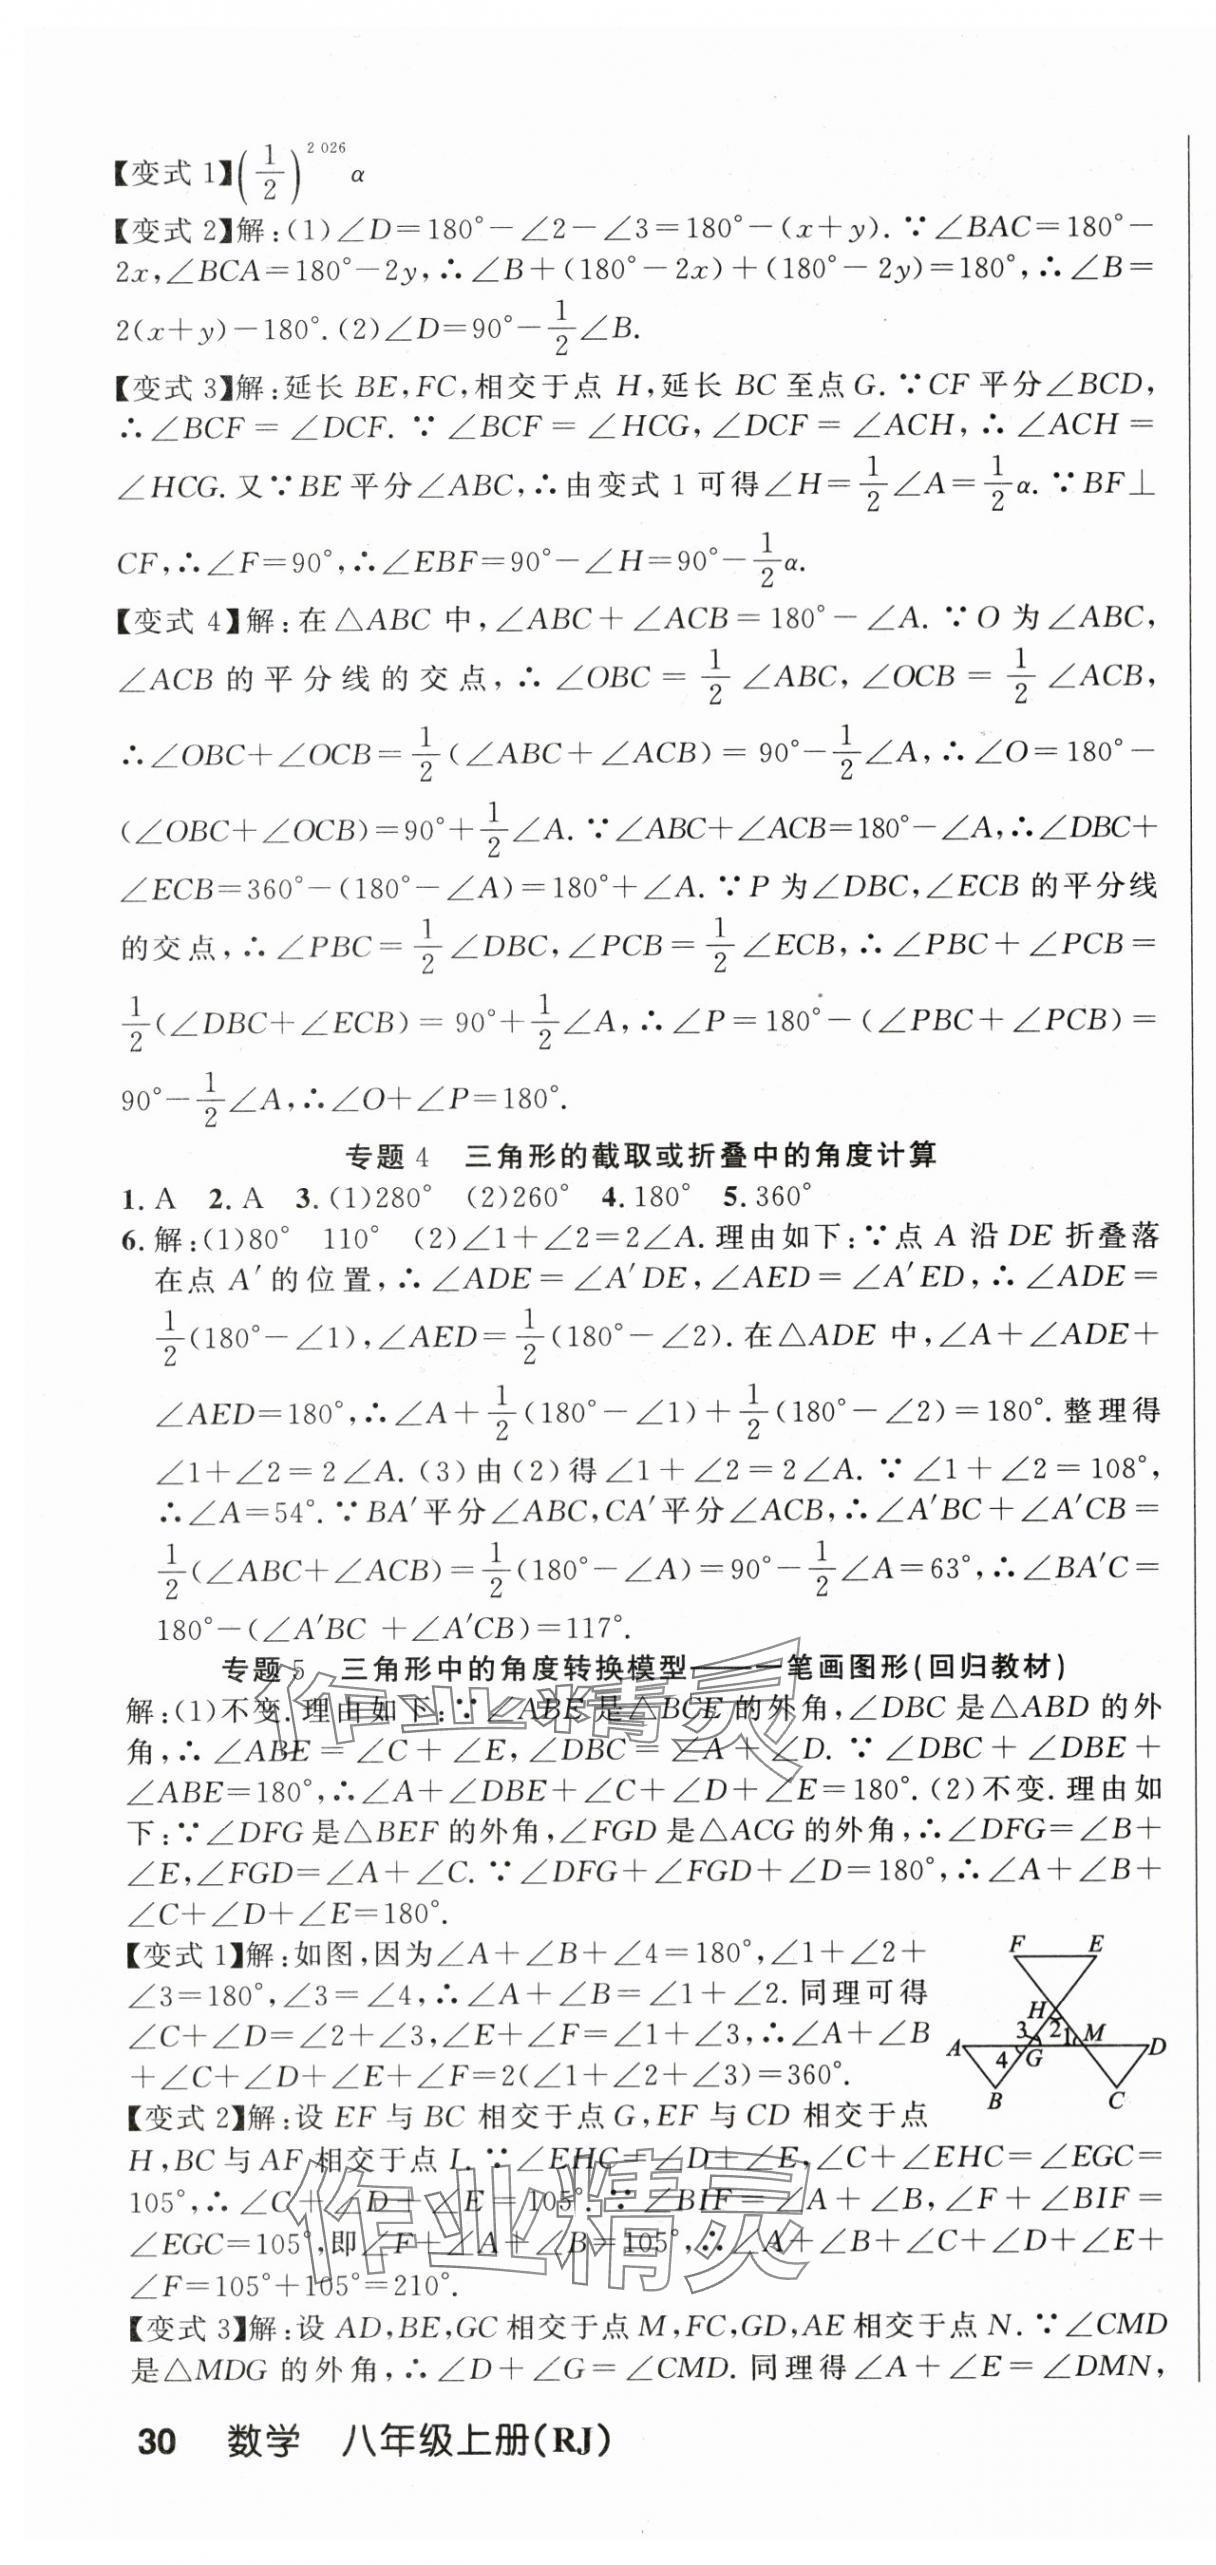 【变式 1】(1/2)^2 026 α
【变式 2】解:(1)∠D=180°-∠2-∠3=180°-(x+y).∵∠BAC=180°-
2x,∠BCA=180°-2y,∴∠B+(180°-2x)+(180°-2y)=180°,∴∠B=
2(x+y)-180°.(2)∠D=90°-1/2∠B.
【变式 3】解:延长 BE,FC,相交于点 H,延长 BC 至点 G.∵CF 平分∠BCD,
∴∠BCF=∠DCF.∵∠BCF=∠HCG,∠DCF=∠ACH,∴∠ACH=
∠HCG.又∵BE 平分∠ABC,∴由变式 1 可得∠H=1/2∠A=1/2α.∵BF⊥
CF,∴∠F=90°,∴∠EBF=90°-∠H=90°-1/2α.
【变式 4】解:在△ABC 中,∠ABC+∠ACB=180°-∠A.∵O 为∠ABC,
∠ACB 的平分线的交点,∴∠OBC=1/2∠ABC,∠OCB=1/2∠ACB,
∴∠OBC+∠OCB=1/2(∠ABC+∠ACB)=90°-1/2∠A,∴∠O=180°-
(∠OBC+∠OCB)=90°+1/2∠A.∵∠ABC+∠ACB=180°-∠A,∴∠DBC+
∠ECB=360°-(180°-∠A)=180°+∠A.∵P 为∠DBC,∠ECB 的平分线
的交点,∴∠PBC=1/2∠DBC,∠PCB=1/2∠ECB,∴∠PBC+∠PCB=
1/2(∠DBC+∠ECB)=90°+1/2∠A,∴∠P=180°-(∠PBC+∠PCB)=
90°-1/2∠A,∴∠O+∠P=180°.
专题 4 三角形的截取或折叠中的角度计算
1. A 2. A 3. (1)280° (2)260° 4. 180° 5. 360°
6. 解:(1)80° 110° (2)∠1+∠2=2∠A.理由如下:∵点 A 沿 DE 折叠落
在点 A′的位置,∴∠ADE=∠A′DE,∠AED=∠A′ED,∴∠ADE=
1/2(180°-∠1),∠AED=1/2(180°-∠2).在△ADE 中,∠A+∠ADE+
∠AED=180°,∴∠A+1/2(180°-∠1)+1/2(180°-∠2)=180°.整理得
∠1+∠2=2∠A.(3)由(2)得∠1+∠2=2∠A.∵∠1+∠2=108°,
∴∠A=54°.∵BA′平分∠ABC,CA′平分∠ACB,∴∠A′BC+∠A′CB=
1/2(∠ABC+∠ACB)=1/2(180°-∠A)=90°-1/2∠A=63°,∴∠BA′C=
180°-(∠A′BC+∠A′CB)=117°.
专题 5 三角形中的角度转换模型——一笔画图形(回归教材)
解:(1)不变.理由如下:∵∠ABE 是△BCE 的外角,∠DBC 是△ABD 的外
角,∴∠ABE=∠C+∠E,∠DBC=∠A+∠D.∵∠DBC+∠DBE+
∠ABE=180°,∴∠A+∠DBE+∠C+∠D+∠E=180°.(2)不变.理由如
下:∵∠DFG 是△BEF 的外角,∠FGD 是△ACG 的外角,∴∠DFG=∠B+
∠E,∠FGD=∠A+∠C.∵∠DFG+∠FGD+∠D=180°,∴∠A+∠B+
∠C+∠D+∠E=180°.
【变式 1】解:如图,因为∠A+∠B+∠4=180°,∠1+∠2+
∠3=180°,∠3=∠4,∴∠A+∠B=∠1+∠2.同理可得
∠C+∠D=∠2+∠3,∠E+∠F=∠1+∠3,∴∠A+∠B
+∠C+∠D+∠E+∠F=2(∠1+∠2+∠3)=360°.
F E
H
3 2 1 M
A D
4 G
B C
【变式 2】解:设 EF 与 BC 相交于点 G,EF 与 CD 相交于点
H,BC 与 AF 相交于点 I.∵∠EHC=∠D+∠E,∠C+∠EHC=∠EGC=
105°,∴∠C+∠D+∠E=105°.∵∠BIF=∠A+∠B,∠F+∠BIF=
∠EGC=105°,即∠F+∠A+∠B=105°,∴∠A+∠B+∠C+∠D+∠E+
∠F=105°+105°=210°.
【变式 3】解:设 AD,BE,GC 相交于点 M,FC,GD,AE 相交于点 N.∵∠CMD
是△MDG 的外角,∴∠D+∠G=∠CMD.同理得∠A+∠E=∠DMN,
30 数学 八年级上册(RJ)
作业精灵
作业精灵